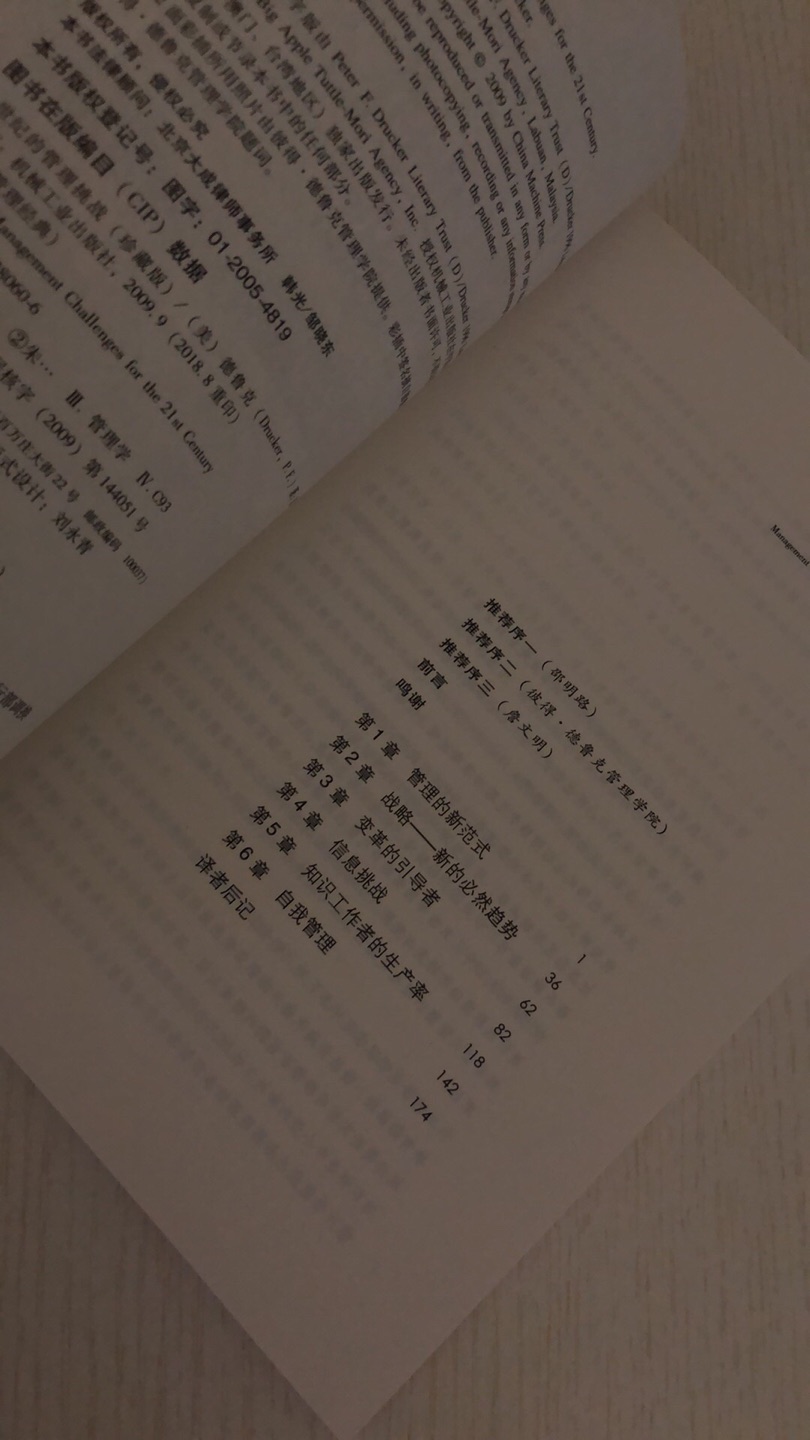 ges for the 21st Century.
cker.
F. Drucker Literary Trust (D) /Drucker 1996
tle-Mori Agency, Labuan, Malaysia.
pyright © 2009 by China Machine Press.
be reproduced or transmitted in any form or by any
luding photocopying, recording or any information
ermission, in writing, from the publisher.
字版由 Peter F. Drucker Literary Trust (D) /Drucker
Big Apple Tuttle-Mori Agency, Inc. 授权机械工业出版社
澳门、台湾地区)独家出版发行。未经出版者书面许可,
复制或节录本书中的任何部分。
面影插所用照片由彼得·德鲁克管理学院提供。
·德鲁克管理学院题词。
版权所有,侵权必究
本书法律顾问:北京大成律师事务所 韩光/邹晓东
本书版权登记号:图字:01-2005-4819
图书在版编目(CIP)数据
世纪的管理挑战(珍藏版)/(美)德鲁克(Drucker, P. F.)
机械工业出版社,2009.9(2018.8重印)
管理经典)
Management Challenges for the 21st Century
28060-6
②朱… Ⅲ. 管理学 Ⅳ. C93
核字(2009)第144051号
百万庄大街22号 邮政编码 100037)
式设计:刘永青
Management
推荐序一(邵明路)
推荐序二(彼得·德鲁克管理学院)
推荐序三(詹文明)
前言
鸣谢
第1章 管理的新范式 1
第2章 战略——新的必然趋势 36
第3章 变革的引导者 62
第4章 信息挑战 82
第5章 知识工作者的生产率 118
第6章 自我管理 142
译者后记 174